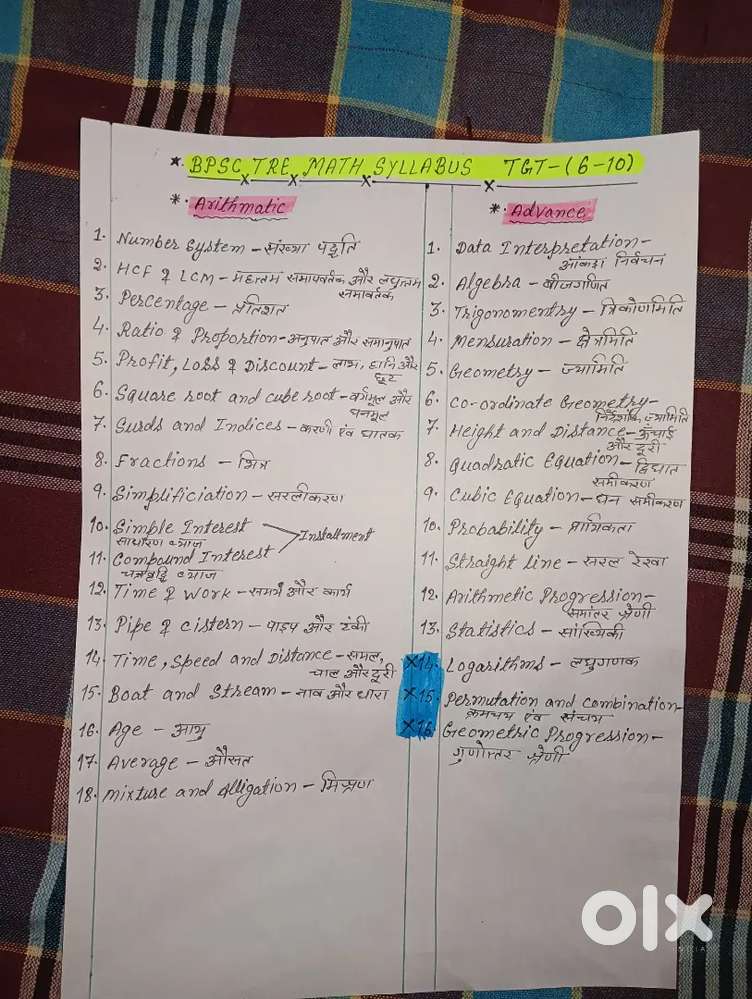 ★. BPSC TRE MATH SYLLABUS TGT-(6-10)
*. Arithmatic
1. Number System – संख्या पद्धति
2. HCF & LCM – महत्तम समापवर्तक और लघुत्तम
समावर्तक
3. Percentage – प्रतिशत
4. Ratio & Proportion – अनुपात और समानुपात
5. Profit, Loss & Discount – लाभ, हानि और
छूट
6. Square root and cube root – वर्गमूल और
घनमूल
7. Surds and Indices – करणी एंव घातक
8. Fractions – भिन्न
9. Simplificiation – सरलीकरण
10. Simple Interest
साधारण ब्याज
Installment
11. Compound Interest
चक्रवृद्वि ब्याज
12. Time & Work – समय और कार्य
13. Pipe & Cistern – पाइप और टंकी
14. Time, Speed and Distance – समय,
चाल और दूरी
15. Boat and Stream – नाव और धारा
16. Age – आयु
17. Average – औसत
18. Mixture and Alligation – मिश्रण
*. Advance
1. Data Interpretation –
आंकड़ा निर्वचन
2. Algebra – बीजगणित
3. Trigonomentry – त्रिकोणमिति
4. Mensuration – क्षेत्रमिति
5. Geometry – ज्यामिति
6. Co-ordinate Geometry –
निर्देशांक ज्यामिति
7. Height and Distance – ऊँचाई
और दूरी
8. Quadratic Equation – द्विघात
समीकरण
9. Cubic Equation – घन समीकरण
10. Probability – प्रायिकता
11. Straight line – सरल रेखा
12. Arithmetic Progression –
समांतर श्रेणी
13. Statistics – सांख्यिकी
×14. Logarithms – लघुगणक
×15. Permutation and Combination –
क्रमचय एंव संचय
×16. Geometric Progression –
गुणोत्तर श्रेणी
olx